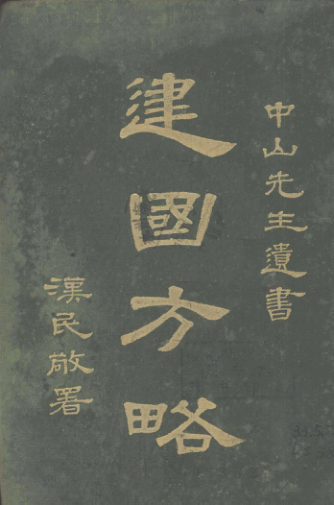 中山先生遺書
建國方略
漢民敬署